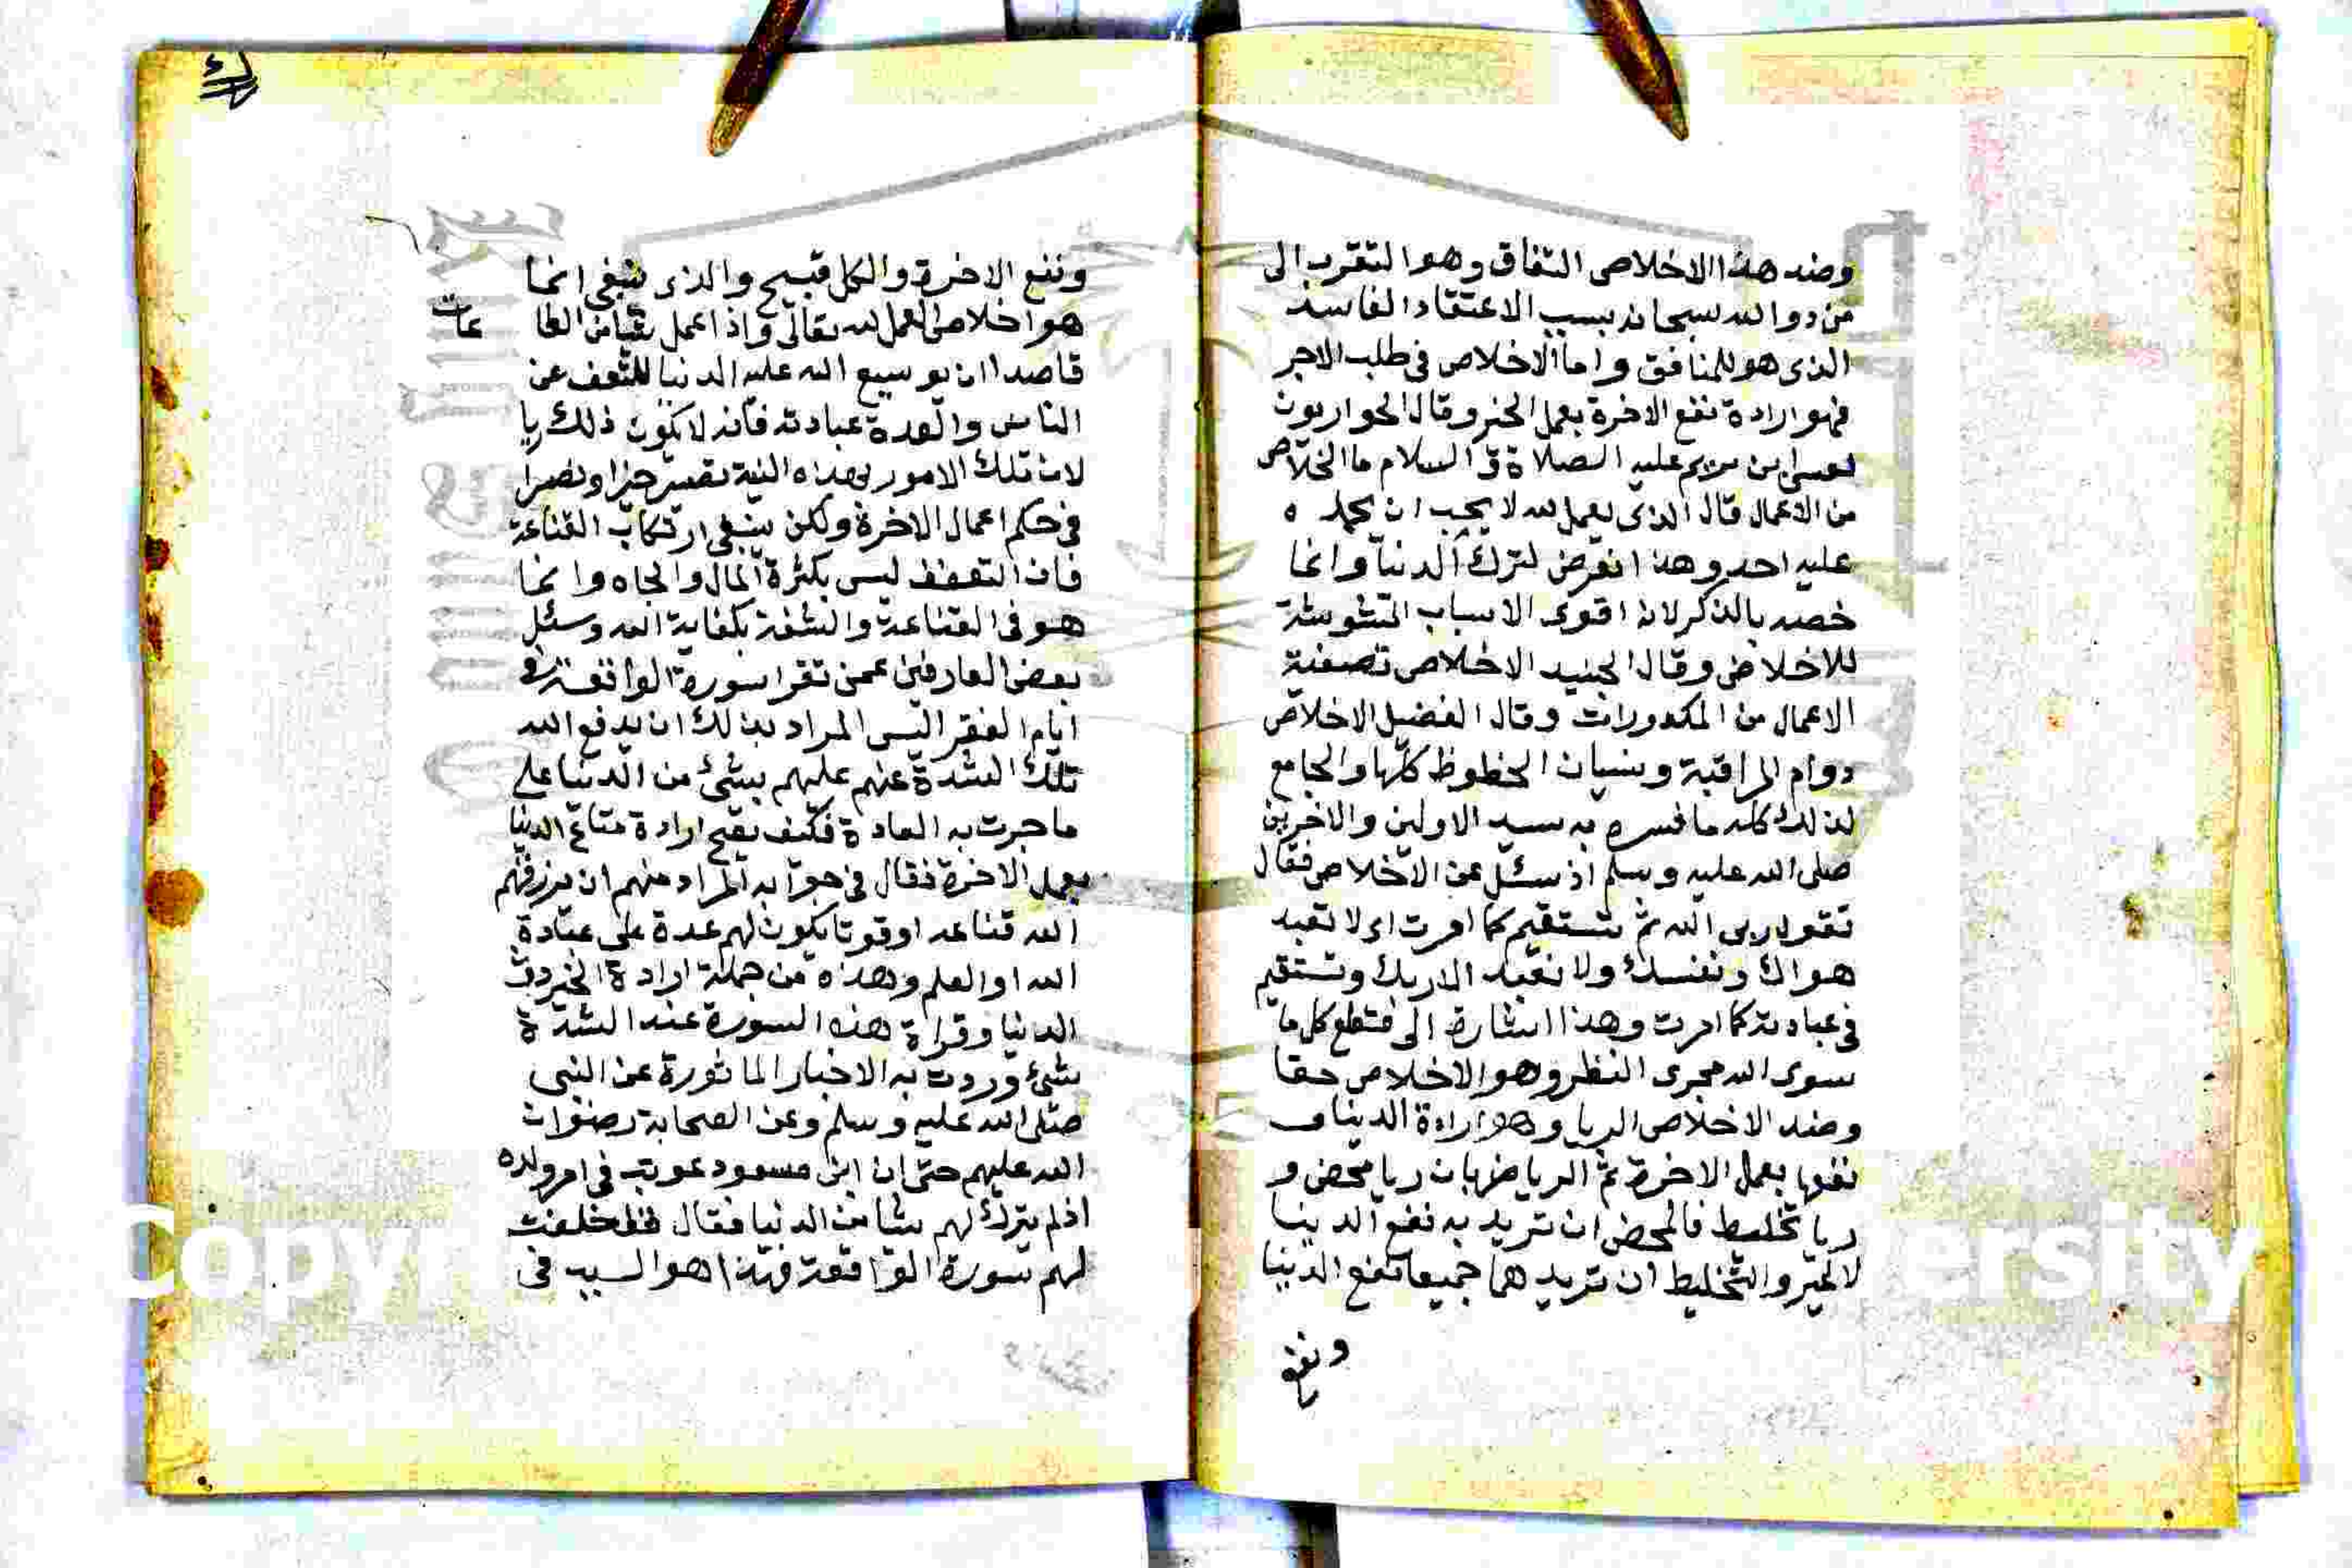 وضد هذا الاخلاص النفاق وهو التقرب الى
من دوا الله سبحانه بسبب الاعتقاد الفاسد
الذى هو للمنافق واما الاخلاص فى طلب الاجر
فهو ارادة نفع الاخرة بعمل الخير وقال الحواريون
لعيسى بن مريم عليه الصلاة و السلام ما الخلاص
من الاعمال قال الذى يعمل لله لا يحب ان يحمده
عليه احد وهذا انعرض لترك الدنيا وانما
خصه بالذكر لانه اقوى الاسباب المشوشة
للاخلاص وقال الجنيد الاخلاص تصفية
الاعمال من المكدورات وقال الفضيل الاخلاص
دوام المراقبة ونسيان الحظوظ كلها والجامع
لذلك كله ما فسره به سيد الاولين والاخرين
صلى الله عليه وسلم اذ سئل عن الاخلاص فقال
تقول ربى الله ثم تستقيم كما امرت اى لا تعبد
هواك ونفسك ولا تعبد الا ربك وتستقيم
فى عبادته كما امرت وهذا اشارة الى قطع كل ما
سوى الله مجرى النظر وهو الاخلاص حقا
وضد الاخلاص الريا وهو ارادة الدنيا و
نفعها بعمل الاخرة ثم الريا ضربان ريا محض و
ريا تخليط فالمحض ان تريد به نفع الدينا
لا لخير والتخليط ان تريد هما جميعا نفع الدنيا
ونفع
ونفع الاخرة والكل قبيح والذى ينبغى انما
هو اخلاص العمل لله تعالى واذا عمل شيا من الطا
عات
قاصدا ان يوسع الله عليه الدنيا للتعفف عن
الناس والعدة عبادته فانه لا يكون ذلك ريا
لان تلك الامور بهذه النية تصير خيرا وتصير
فى حكم اعمال الاخرة ولكن ينبغى ارتكاب القناعة
فان التعفف ليس بكثرة المال والجاه وانما
هو فى القناعة والشقة بكفاية الله وسئل
بعض العارفين عمن تقرا سورة الواقعة فى
ايام الفقر اليس المراد بذلك ان يدفع الله
تلك الشدة عنهم عليهم بشئ من الدنيا على
ما جرت به العادة فكيف يصح ارادة متاع الدنيا
بعمل الاخرة فقال فى جوابه المراد منهم ان يرزقهم
الله قناعه او قوتا يكون لهم عدة على عبادة
الله او العلم وهذه من جملة ارادة الخير دون
الدنيا وقراة هذه السورة عند الشدة
شئ وردت به الاخبار الماثورة عن النبى
صلى الله عليه وسلم وعن الصحابة رضوان
الله عليهم حتى ان ابن مسعود عوتب فى امر ولده
اذ لم يترك لهم شيا من الدنيا فقال خلفت
لهم سورة الواقعة فهذا هو السبب فى